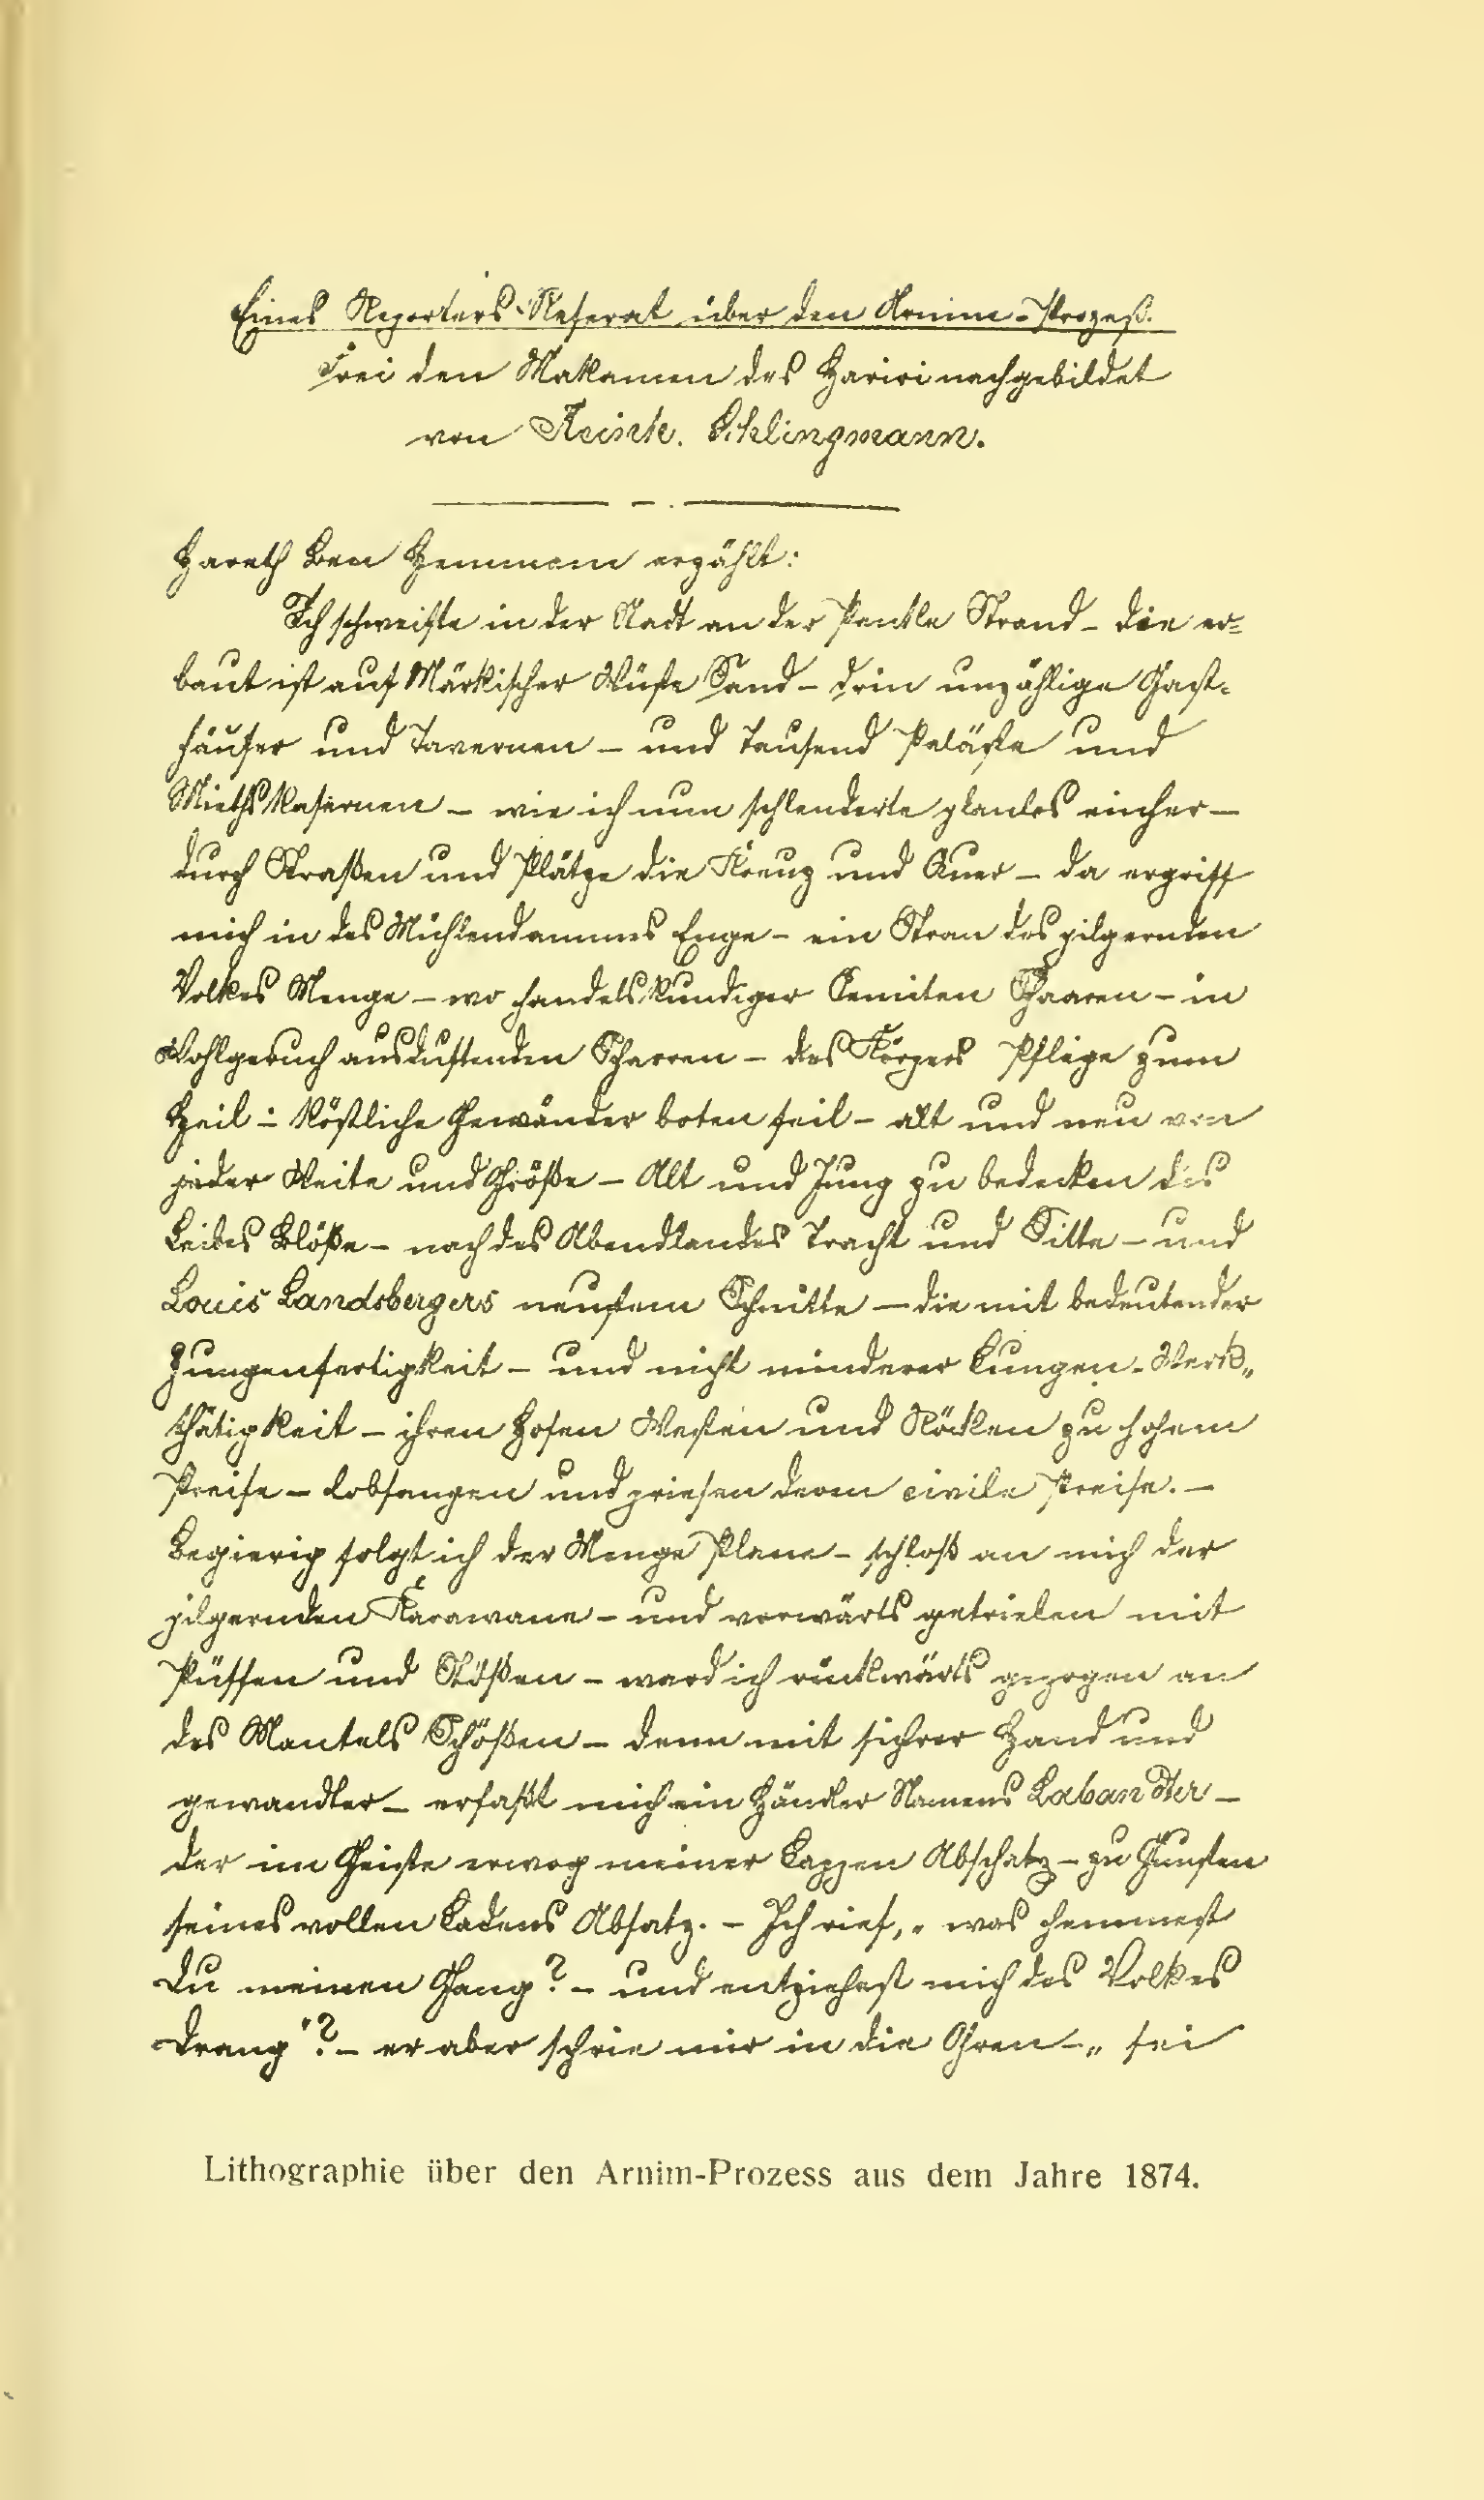 Eines Reporters Referat über den Arnim-Prozeß.
Frei den Makamen des Hariri nachgebildet
von Reinh. Schlingmann.
Hareth Ben Hemmam erzählt:
Ich schweifte in der Stadt an der Panke Strand – die er=
baut ist auf Märkischer Wüste Sand – drin unzählige Gast-
häuser und Tavernen – und Tausend Paläste und
Mieths Kasernen – wie ich nun schlenderte planlos einher –
durch Straßen und Plätze die Kreuz und Quer – da ergriff
mich in des Mühlendammes Enge – ein Strom des pilgernden
Volkes Menge – wo handelskundiger Semiten Schaaren – in
Wohlgeruch ausduftenden – des Körpers Pflege zum
Heil – köstliche Gewänder boten feil – alt und neu von
jeder Weite und Größe – Alt und Jung zu bedecken des
Leibes Blöße – nach des Abendlandes Tracht und Sitte – und
Louis Landsbergers neustem Schnitte – die mit bedeutender
Zungenfertigkeit – und nicht minderer Lungen-Werk„
thätigkeit – ihren Hosen Westen und Röcken zu hohem
Preise – lobsangen und priesen deren civile Preise. –
Begierig folgt ich der Menge Plane – schloß an mich der
pilgernden Karawane – und vorwärts getrieben mit
Püffen und Stößen – ward ich rückwärts gezogen an
des Mantels Schößen – denn mit sichrer Hand und
gewandter – erfaßt mich ein Händler Namens Labandter –
der im Geiste erwog meiner Lappen Abschatz – zu Gunsten
seines vollen Ladens Absatz. – Ich rief, „ was hemmest
Du meinen Gang? – und entziehest mich des Volkes
Drang"? – er aber schrie mir in die Ohren – „ sei
Lithographie über den Arnim-Prozess aus dem Jahre 1874.